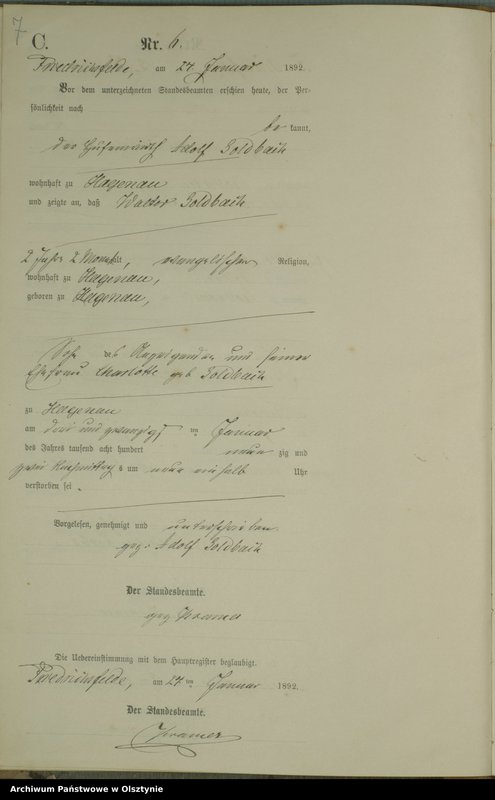 7
C.
Nr. 6.
Friedrichsfelde, am 27. Januar 1892.
Vor dem unterzeichneten Standesbeamten erschien heute, der Per-
sönlichkeit nach
be kannt,
der Hufenwirth Adolf Goldbach
wohnhaft zu Hagenau
und zeigte an, daß Walter Goldbach
2 Jahr 2 Monat alt, evangelischer Religion,
wohnhaft zu Hagenau,
geboren zu Hagenau,
Sohn des Anzeigenden und seiner
Ehefrau Charlotte geb Goldbach
zu Hagenau
am drei und zwanzigsten Januar
des Jahres tausend acht hundert neun zig und
zwei Nachmittags um neun einhalb Uhr
verstorben sei.
Vorgelesen, genehmigt und unterschrieben
gez. Adolf Goldbach
Der Standesbeamte.
gez Kramer
Die Uebereinstimmung mit dem Hauptregister beglaubigt.
Friedrichsfelde, am 27. ten Januar 1892.
Der Standesbeamte.
Kramer
Archiwum Państwowe w Olsztynie